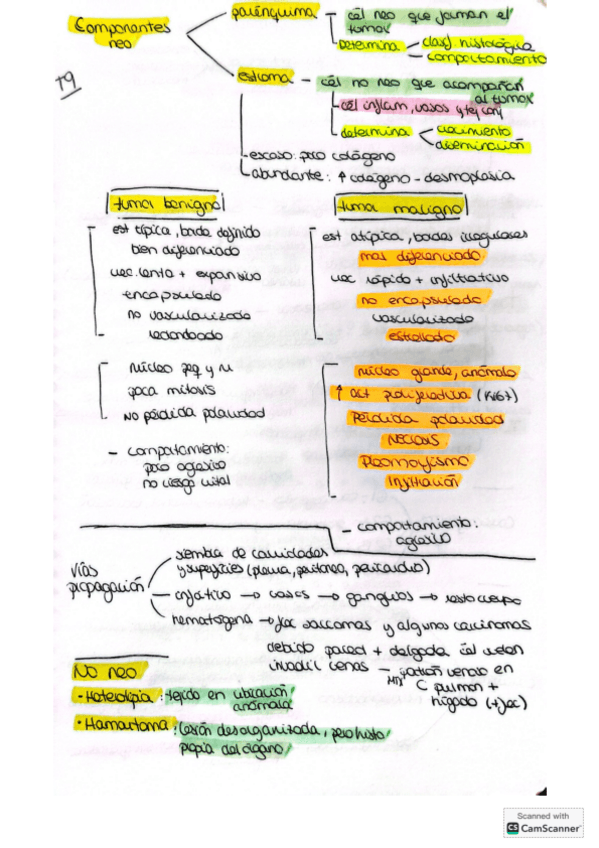 Componentes neo
parénquima - cél neo que forman el tumor
Determina - clasif. histológica
comportamiento
T9
estroma - cél no neo que acompañan al tumor
cél inflam, vasos y tej con
determina - crecimiento
diseminación
escaso: poco colágeno
abundante: ↑ colágeno - desmoplasia
tumor benigno
est típica, borde definido
bien diferenciado
crec. lento + expansivo
encapsulado
no vascularizado
redondeado
núcleo peq y
poca mitosis
NO pérdida polaridad
- comportamiento:
poco agresivo
no riesgo vital
tumor maligno
est atípica, bordes irregulares
mal diferenciado
crec rápido + infiltrativo
no encapsulado
vascularizado
estrellado
núcleo grande, anómalo
↑ act proliferativa (Ki67)
Pérdida polaridad
necrosis
Pleomorfismo
Infiltración
- comportamiento:
agresivo
vías propagación
siembra de cavidades
y superficies (pleura, peritoneo, pericardio)
linfático → vasos → ganglios → resto cuerpo
hematógena → frec sarcomas y algunos carcinomas
debido pared + delgada cél
invadir venas - patrón venoso en
MTX C pulmón +
hígado (+ frec)
NO neo
• Heterotopia: tejido en ubicación
anómala
• Hamartoma: lesión desorganizada, pero
propia del órgano
Scanned with
CS CamScanner